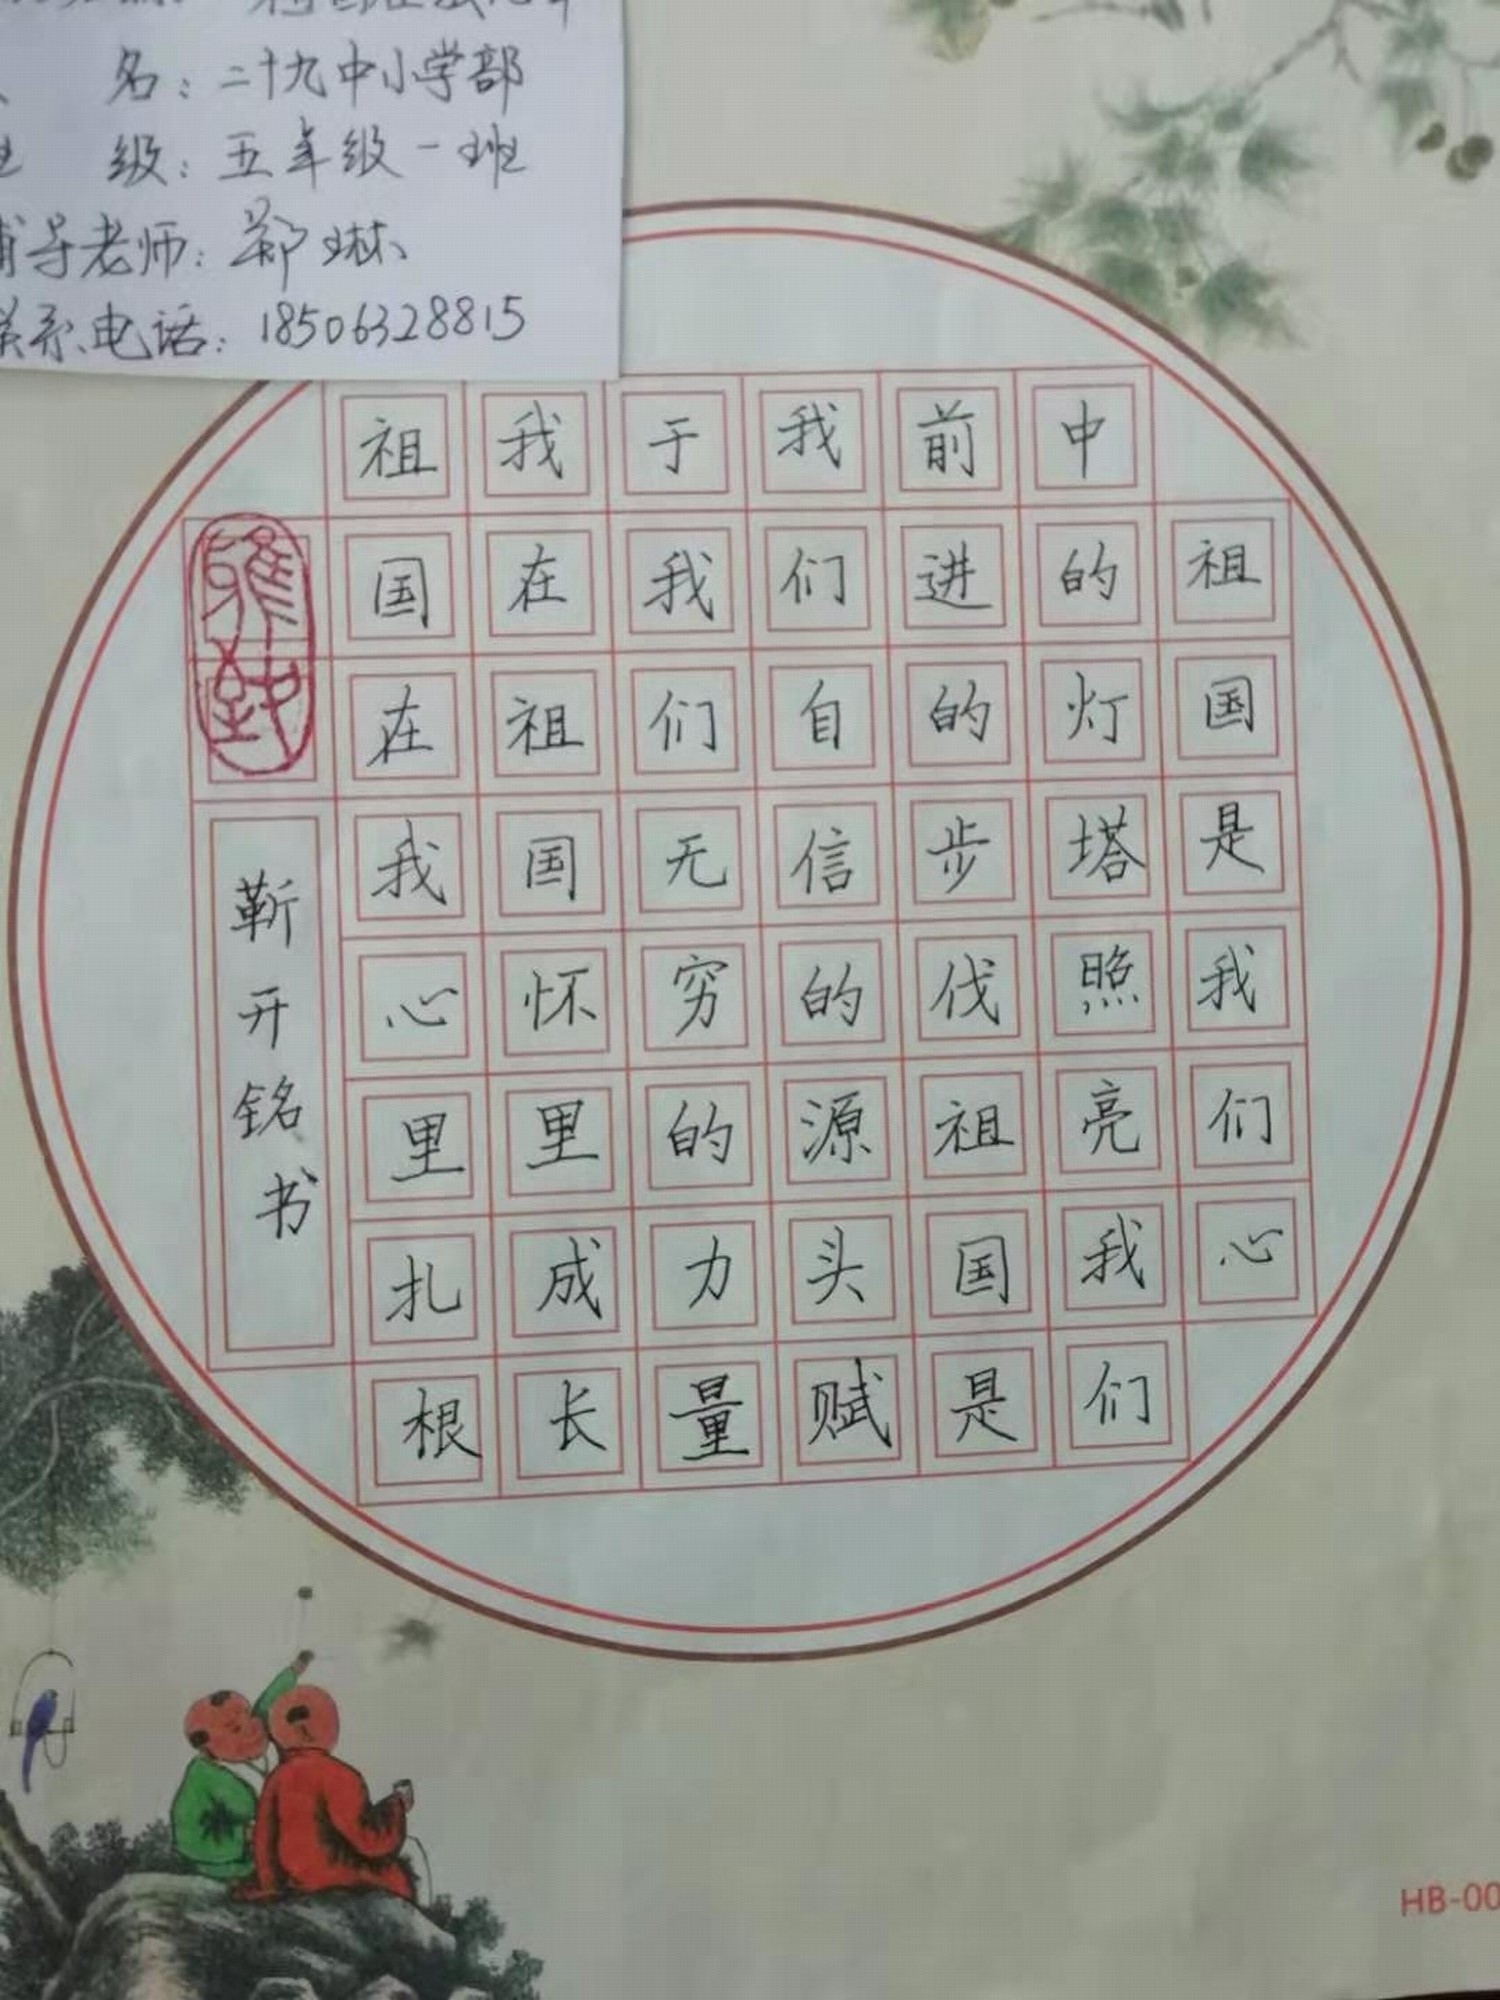 名：二十九中小学部
级：五年级一班
辅导老师：郑琳
联系电话：18506328815
祖国是我们心
中的灯塔照亮我们
前进的步伐祖国是
我们自信的源头赋
于我们无穷的力量
我在祖国怀里成长
祖国在我心里扎根
靳开铭书
HB-00